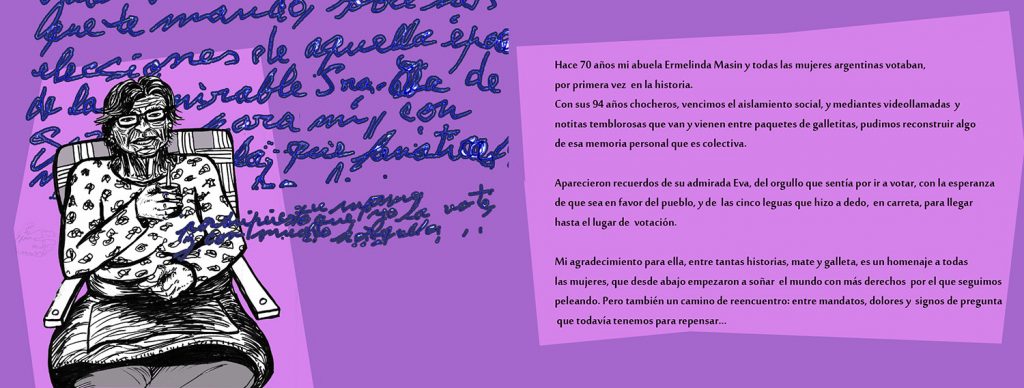 que te mando, sobre
elecciones de aquella época
de la admirable Sra. de
para mí, y con
que
la vote
Hace 70 años mi abuela Ermelinda Masin y todas las mujeres argentinas votaban,
por primera vez en la historia.
Con sus 94 años chocheros, vencimos el aislamiento social, y mediantes videollamadas y
notitas temblorosas que van y vienen entre paquetes de galletitas, pudimos reconstruir algo
de esa memoria personal que es colectiva.
Aparecieron recuerdos de su admirada Eva, del orgullo que sentía por ir a votar, con la esperanza
de que sea en favor del pueblo, y de las cinco leguas que hizo a dedo, en carreta, para llegar
hasta el lugar de votación.
Mi agradecimiento para ella, entre tantas historias, mate y galleta, es un homenaje a todas
las mujeres, que desde abajo empezaron a soñar el mundo con más derechos por el que seguimos
peleando. Pero también un camino de reencuentro: entre mandatos, dolores y signos de pregunta
que todavía tenemos para repensar...